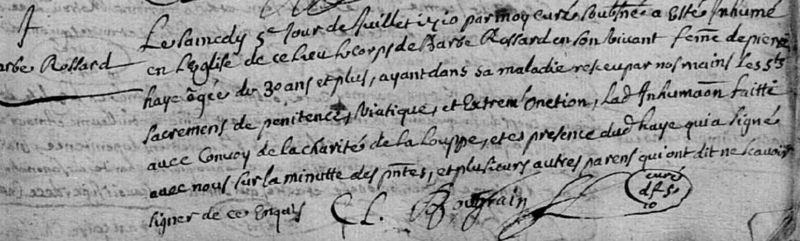 Barbe Rossard
Le samedy 5e Jour de Juillet 1710 par moy curé soubsné a Esté Inhumé
en L'eglise de ce lieu le corps de Barbe Rossard en son vivant feme de pierre
haye agée de 30 ans et plus, ayant dans sa maladie receu par nos mains Les Sts
sacremens de penitence, viatique, et Extrem'onction, Lad. Inhumaon faitte
avec Convoy de la charité de la Louppe, et es presence dud. haye qui a signé
avec nous sur la minutte des pntes, et plusieurs autres parens qui ont dit ne scavoir
signer de ce Enquis
curé